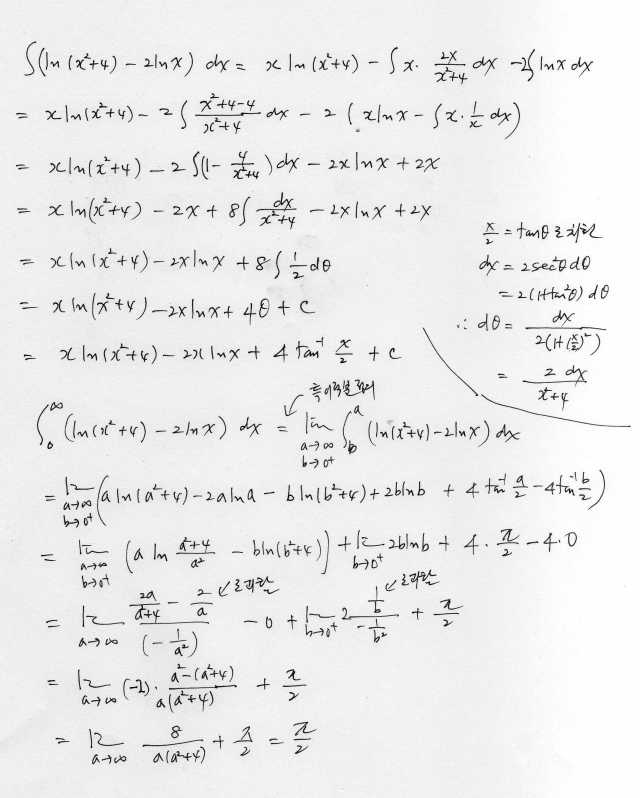 ∫(ln(x²+4) - 2lnx) dx = x ln(x²+4) - ∫x· 2x/(x²+4) dx - 2∫lnx dx
= xln(x²+4) - 2∫ (x²+4-4)/(x²+4) dx - 2(xlnx - ∫x·1/x dx)
= xln(x²+4) - 2∫(1- 4/(x²+4))dx - 2xlnx + 2x
= xln(x²+4) - 2x + 8∫ dx/(x²+4) - 2xlnx + 2x
= xln(x²+4) - 2xlnx + 8∫ 1/2 dθ
= xln(x²+4) - 2xlnx + 4θ + c
= xln(x²+4) - 2xlnx + 4tan⁻¹ x/2 + c
x/2 = tanθ로 치환
dx = 2sec²θdθ
= 2(1+tan²θ)dθ
∴ dθ = dx/(2(1+(x/2)²))
= 2dx/(x²+4)
특이적분 정의
∫₀^∞ (ln(x²+4) - 2lnx) dx = lim_(a→∞, b→0⁺) ∫_b^a (ln(x²+4) - 2lnx) dx
= lim_(a→∞, b→0⁺) (aln(a²+4) - 2alna - bln(b²+4) + 2blnb + 4tan⁻¹ a/2 - 4tan⁻¹ b/2)
= lim_(a→∞, b→0⁺) (a ln (a²+4)/a² - bln(b²+4)) + lim_(b→0⁺) 2blnb + 4·π/2 - 4·0
로피탈 로피탈
= lim_(a→∞) (2a/(a²+4) - 2/a)/(-1/a²) - 0 + lim_(b→0⁺) 2 (1/b)/(-1/b²) + π/2
= lim_(a→∞) (-2)· (a²-(a²+4))/(a(a²+4)) + π/2
= lim_(a→∞) 8/(a(a²+4)) + π/2 = π/2